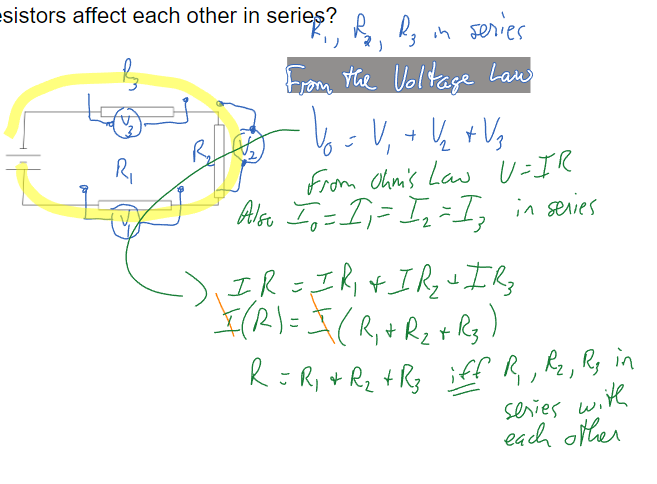 esistors affect each other in series?
R₁, R₂, R₃ in series
From the Voltage Law
V₀ = V₁ + V₂ + V₃
From Ohm's Law V=IR
Also I₀ = I₁ = I₂ = I₃ in series
R₃
V₃
R₂
V₂
R₁
V₁
IR = IR₁ + IR₂ + IR₃
I(R) = I(R₁ + R₂ + R₃)
R = R₁ + R₂ + R₃ iff R₁, R₂, R₃ in
series with
each other